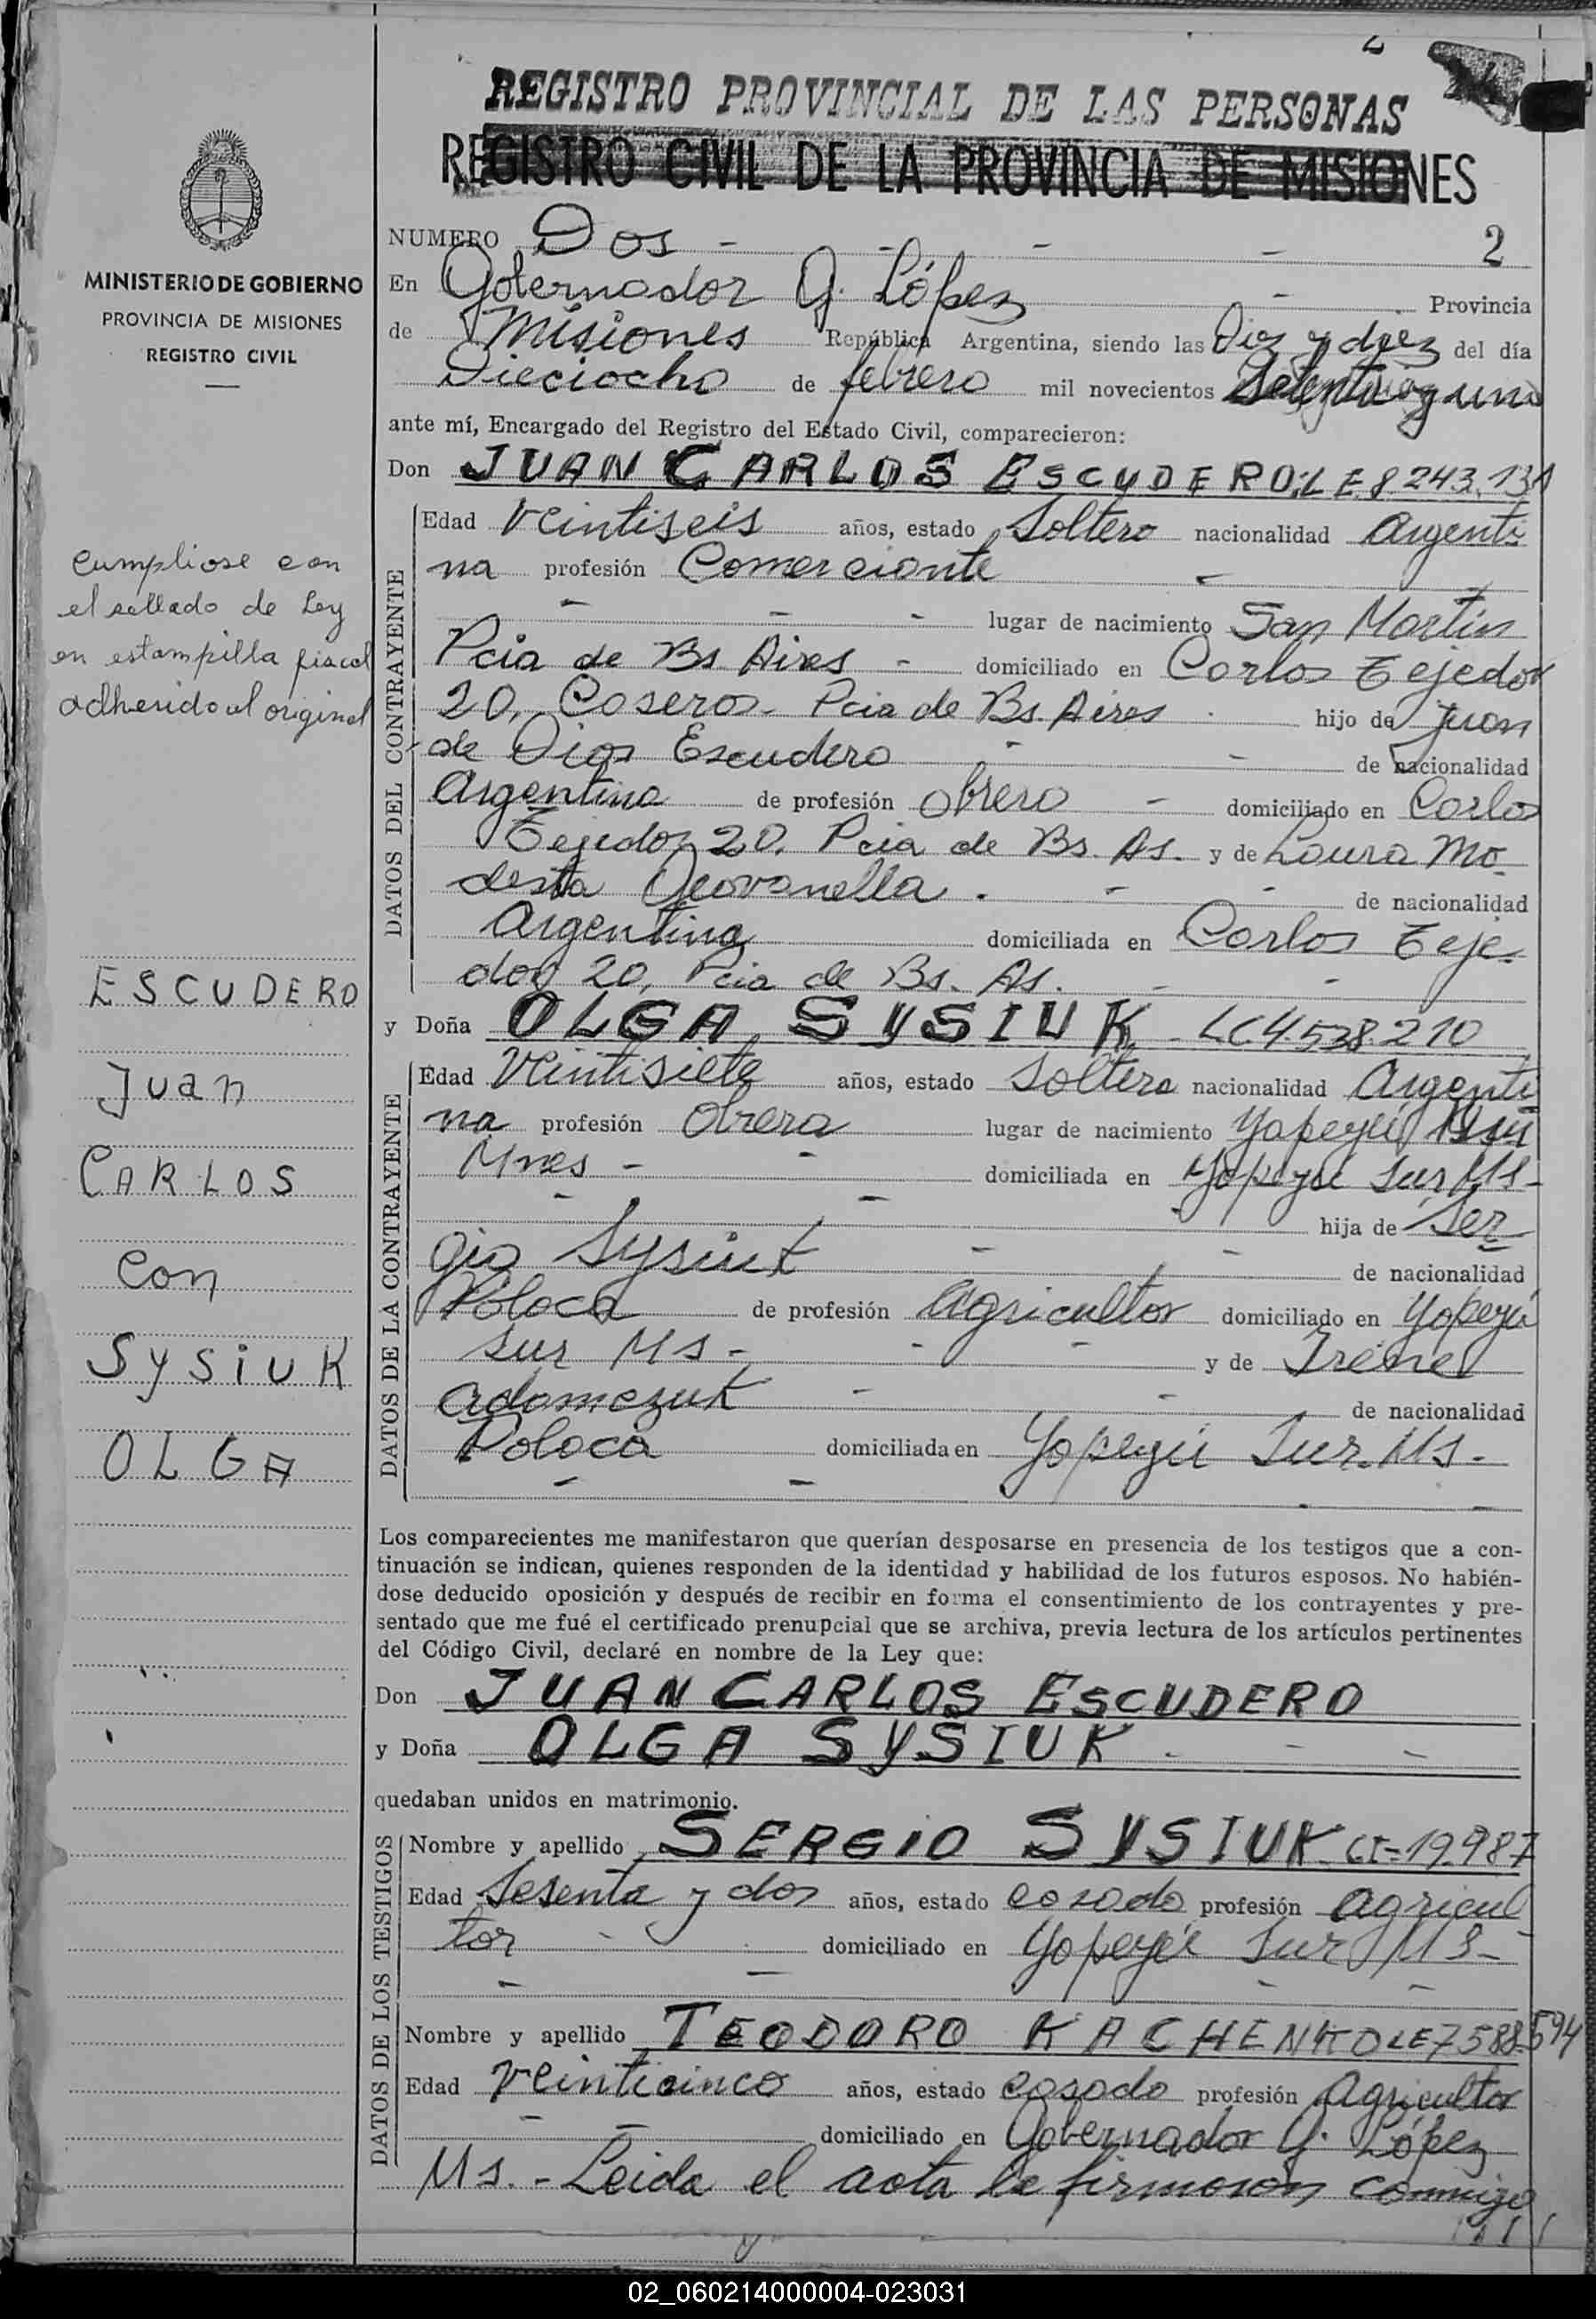 REGISTRO PROVINCIAL DE LAS PERSONAS
REGISTRO CIVIL DE LA PROVINCIA DE MISIONES
MINISTERIO DE GOBIERNO
PROVINCIA DE MISIONES
REGISTRO CIVIL
cumpliose con
el sellado de Ley
en estampilla fiscal
adherido al original
ESCUDERO
Juan
CARLOS
con
SYSIUK
OLGA
NUMERO Dos - - - - 2
En Gobernador G. López - Provincia
de Misiones República Argentina, siendo las Diez y diez del día
Dieciocho de febrero mil novecientos Setenta y uno
ante mí, Encargado del Registro del Estado Civil, comparecieron:
Don JUAN CARLOS ESCUDERO: LE 8.243.131
DATOS DEL CONTRAYENTE
Edad Veintiseis años, estado Soltero nacionalidad Argenti
na profesión Comerciante -
- - - lugar de nacimiento San Martin
Pcia de Bs Aires - domiciliado en Carlos Tejedor
20, Caseros - Pcia de Bs. Aires hijo de Juan
de Dios Escudero - - de nacionalidad
Argentina de profesión Obrero - domiciliado en Carlos
Tejedor 20, Pcia de Bs. As. y de Laura Mo
desta Geovanella. - - de nacionalidad
Argentina domiciliada en Carlos Teje-
dor 20, Pcia de Bs. As. - -
y Doña OLGA SYSIUK - LC 4.538.210
DATOS DE LA CONTRAYENTE
Edad Veintisiete años, estado Soltera nacionalidad Argenti
na profesión Obrera lugar de nacimiento Yapeyú
Mnes - - domiciliada en Yapeyú Sur Ms -
- - hija de Ser
gio Sysiuk - - de nacionalidad
Polaca de profesión Agricultor domiciliado en Yapeyú
Sur Ms - - - y de Irene
Adamczuk - - de nacionalidad
Polaca domiciliada en Yapeyú Sur. Ms -
- - -
Los comparecientes me manifestaron que querían desposarse en presencia de los testigos que a con-
tinuación se indican, quienes responden de la identidad y habilidad de los futuros esposos. No habién-
dose deducido oposición y después de recibir en forma el consentimiento de los contrayentes y pre-
sentado que me fué el certificado prenupcial que se archiva, previa lectura de los artículos pertinentes
del Código Civil, declaré en nombre de la Ley que:
Don JUAN CARLOS ESCUDERO
y Doña OLGA SYSIUK - - -
quedaban unidos en matrimonio.
DATOS DE LOS TESTIGOS
Nombre y apellido SERGIO SYSIUK CI = 19.987
Edad Sesenta y dos años, estado casado profesión Agricul
tor - domiciliado en Yapeyú Sur Ms -
- - - -
Nombre y apellido TEODORO KACHENKO LE 7588.594
Edad Veinticinco años, estado Casado profesión Agricultor
- - domiciliado en Gobernador G. López
Ms. - Leida el acta la firmaron conmigo
02_060214000004-023031